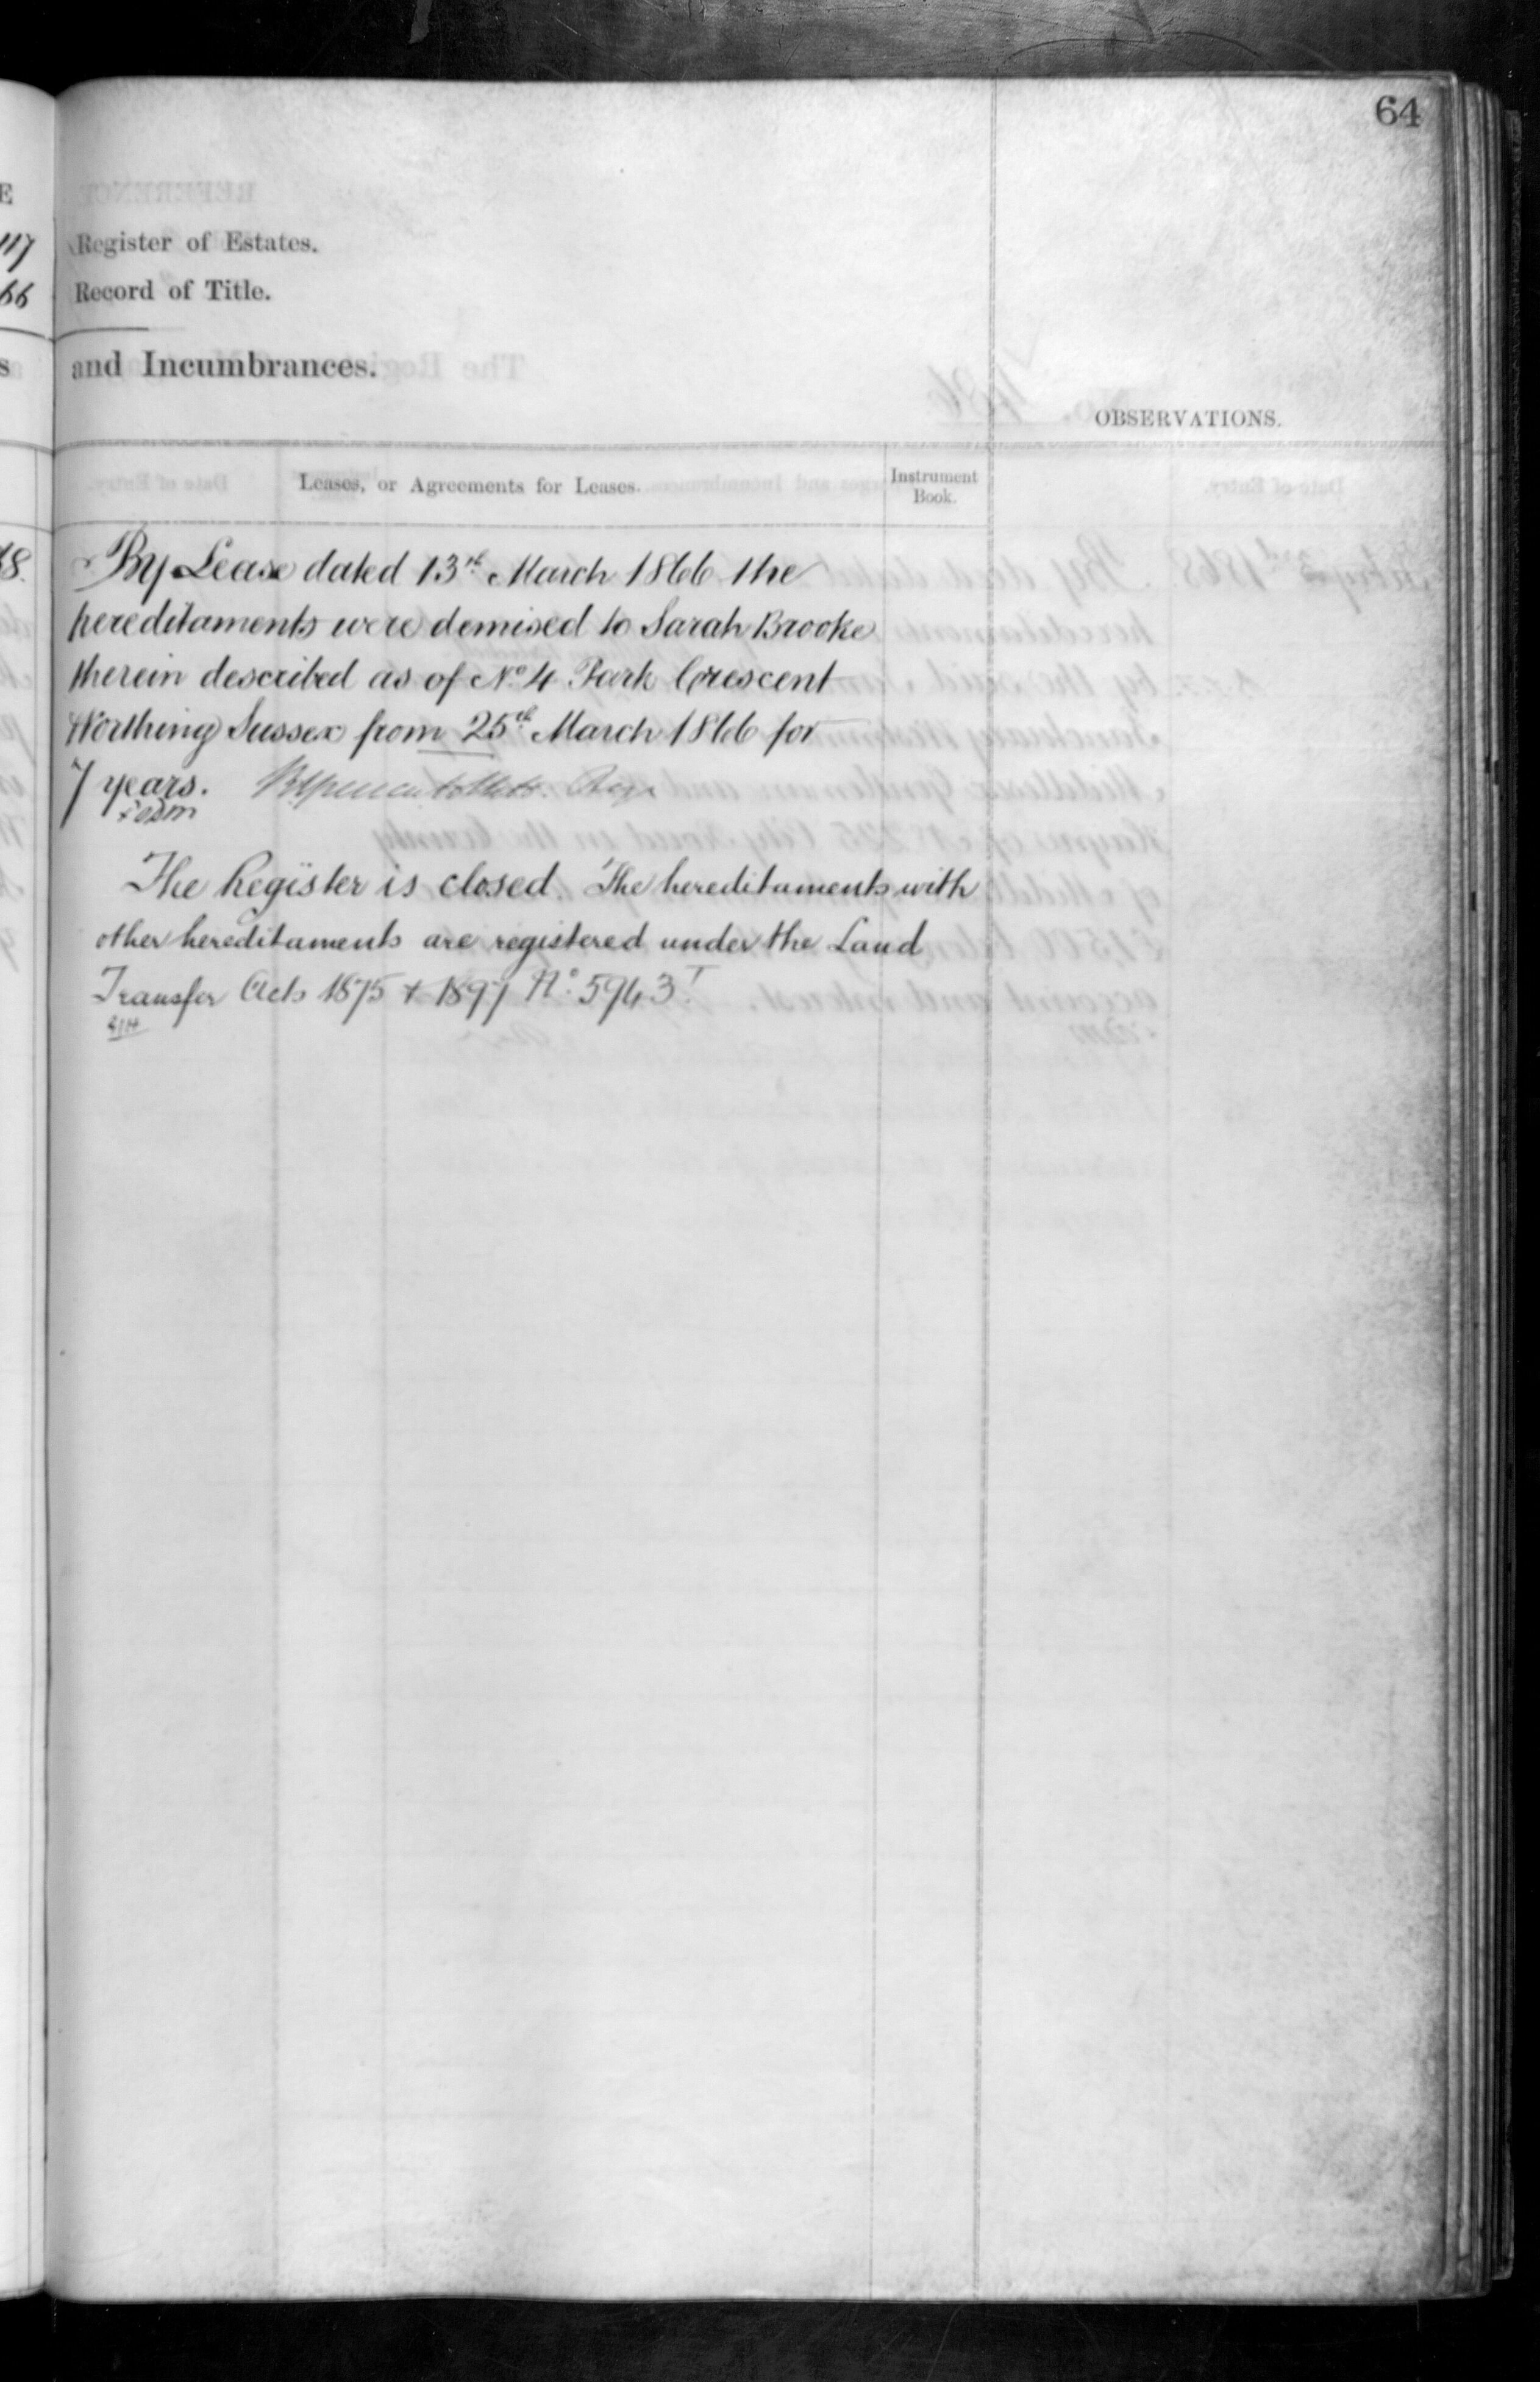 64
Register of Estates.
Record of Title.
and Incumbrances.
OBSERVATIONS.
Leases, or Agreements for Leases.
Instrument
Book.
By Lease dated 13th March 1866 the
hereditaments were demised to Sarah Brooke
therein described as of No. 4 Park Crescent
Worthing Sussex from 25th March 1866 for
7 years.
The Register is closed. The hereditaments with
other hereditaments are registered under the Land
Transfer Acts 1875 + 1897 No. 5943T.